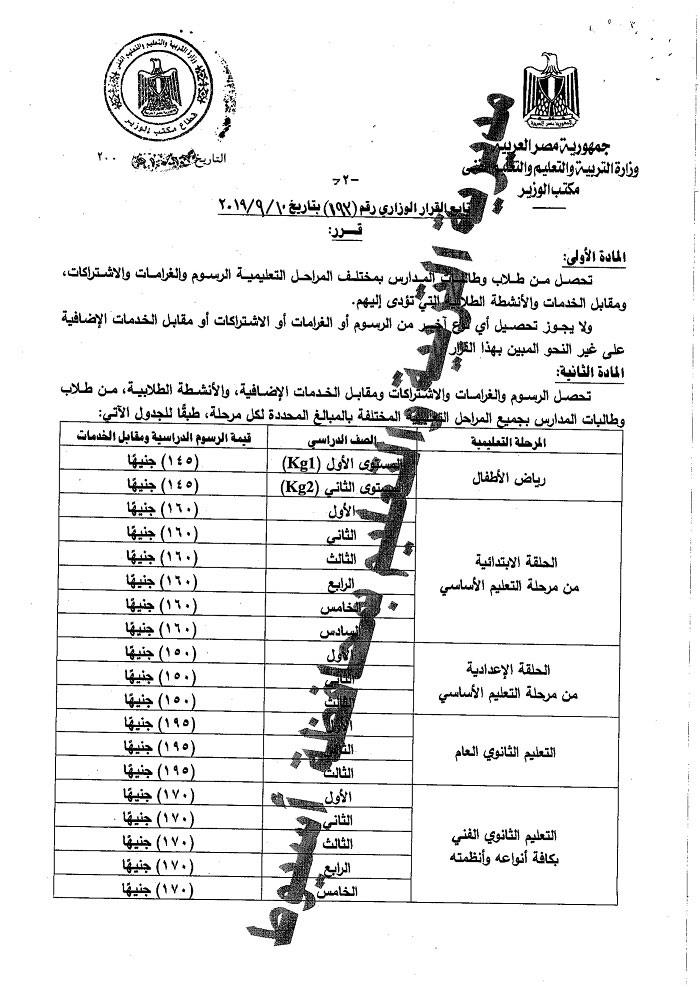 جمهورية مصر العربية
وزارة التربية والتعليم والتعليم الفنى
مكتب الوزير
وزارة التربية والتعليم والتعليم الفني
قطاع مكتب الوزير
التاريخ
٢٠٠
-٢-
تابع القرار الوزاري رقم (١٩٢) بتاريخ ٢٠١٩/٩/١٠
قـرر:
المادة الأولى:
تحصل من طلاب وطالبات المدارس بمختلف المراحل التعليمية الرسوم والغرامات والاشتراكات،
ومقابل الخدمات والأنشطة الطلابية التي تؤدى إليهم.
ولا يجوز تحصيل أي نوع آخر من الرسوم أو الغرامات أو الاشتراكات أو مقابل الخدمات الإضافية
على غير النحو المبين بهذا القرار
المادة الثانية:
تحصل الرسوم والغرامات والاشتراكات ومقابل الخدمات الإضافية، والأنشطة الطلابية، من طلاب
وطالبات المدارس بجميع المراحل التعليمية المختلفة بالمبالغ المحددة لكل مرحلة، طبقًا للجدول الآتي:
المرحلة التعليمية الصف الدراسي قيمة الرسوم الدراسية ومقابل الخدمات
رياض الأطفال
المستوى الأول (Kg1) (١٤٥) جنيهًا
المستوى الثاني (Kg2) (١٤٥) جنيهًا
الحلقة الابتدائية
من مرحلة التعليم الأساسي
الأول (١٦٠) جنيهًا
الثاني (١٦٠) جنيهًا
الثالث (١٦٠) جنيهًا
الرابع (١٦٠) جنيهًا
الخامس (١٦٠) جنيهًا
السادس (١٦٠) جنيهًا
الحلقة الإعدادية
من مرحلة التعليم الأساسي
الأول (١٥٠) جنيهًا
الثاني (١٥٠) جنيهًا
الثالث (١٥٠) جنيهًا
التعليم الثانوي العام
الأول (١٩٥) جنيهًا
الثاني (١٩٥) جنيهًا
الثالث (١٩٥) جنيهًا
التعليم الثانوي الفني
بكافة أنواعه وأنظمته
الأول (١٧٠) جنيهًا
الثاني (١٧٠) جنيهًا
الثالث (١٧٠) جنيهًا
الرابع (١٧٠) جنيهًا
الخامس (١٧٠) جنيهًا
مديرية التربية والتعليم بمحافظة أسيوط